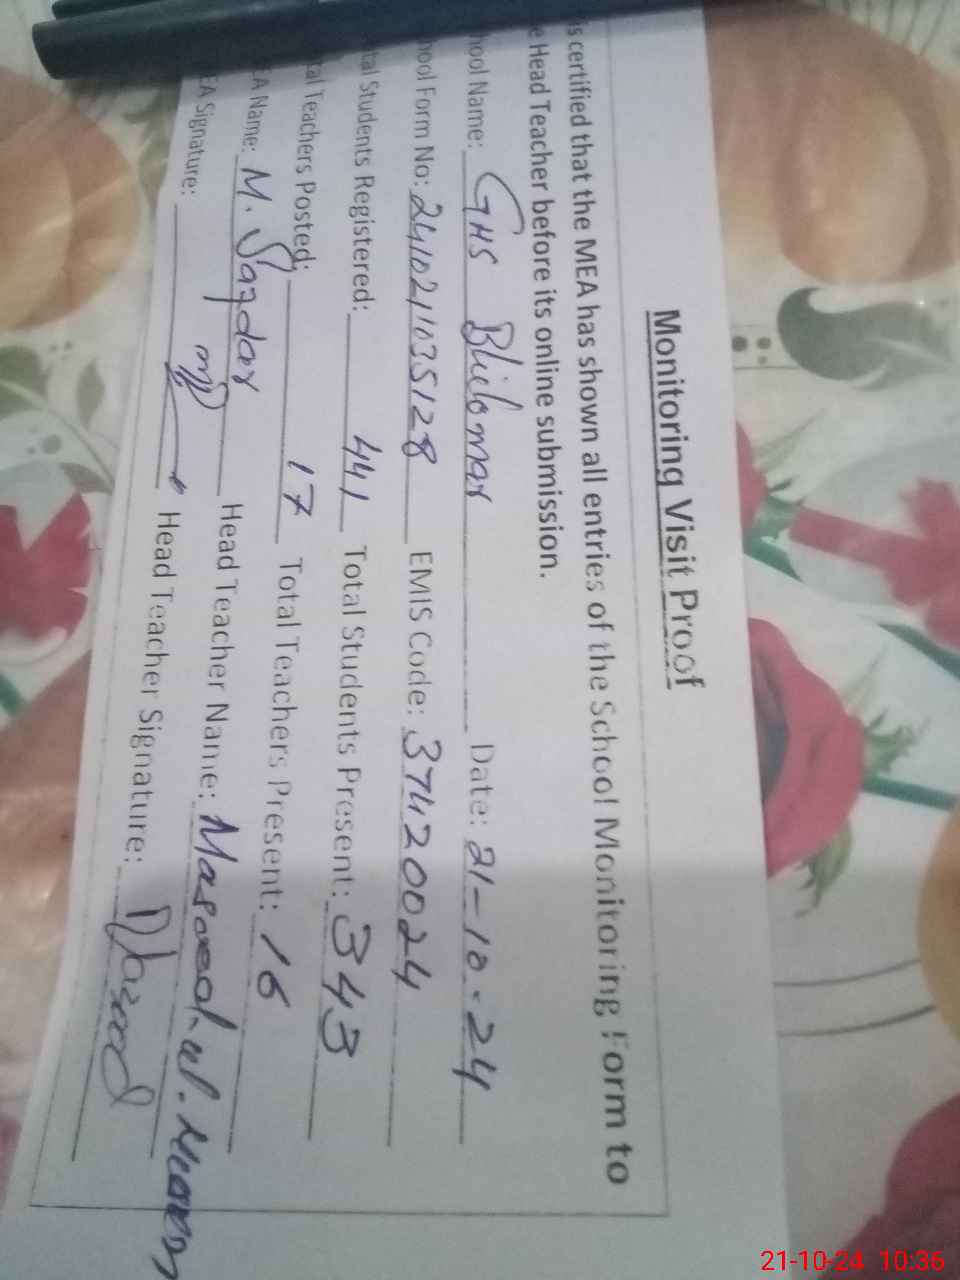 Monitoring Visit Proof
is certified that the MEA has shown all entries of the School Monitoring Form to
e Head Teacher before its online submission.
hool Name: GHS Bhilomar Date: 21-10-24
hool Form No: 241021035128 EMIS Code: 37420024
tal Students Registered: 441 Total Students Present: 343
tal Teachers Posted: 17 Total Teachers Present: 16
EA Name: M. Safdar Head Teacher Name: Masood.ul.
EA Signature: Head Teacher Signature:
21-10-24 10:36